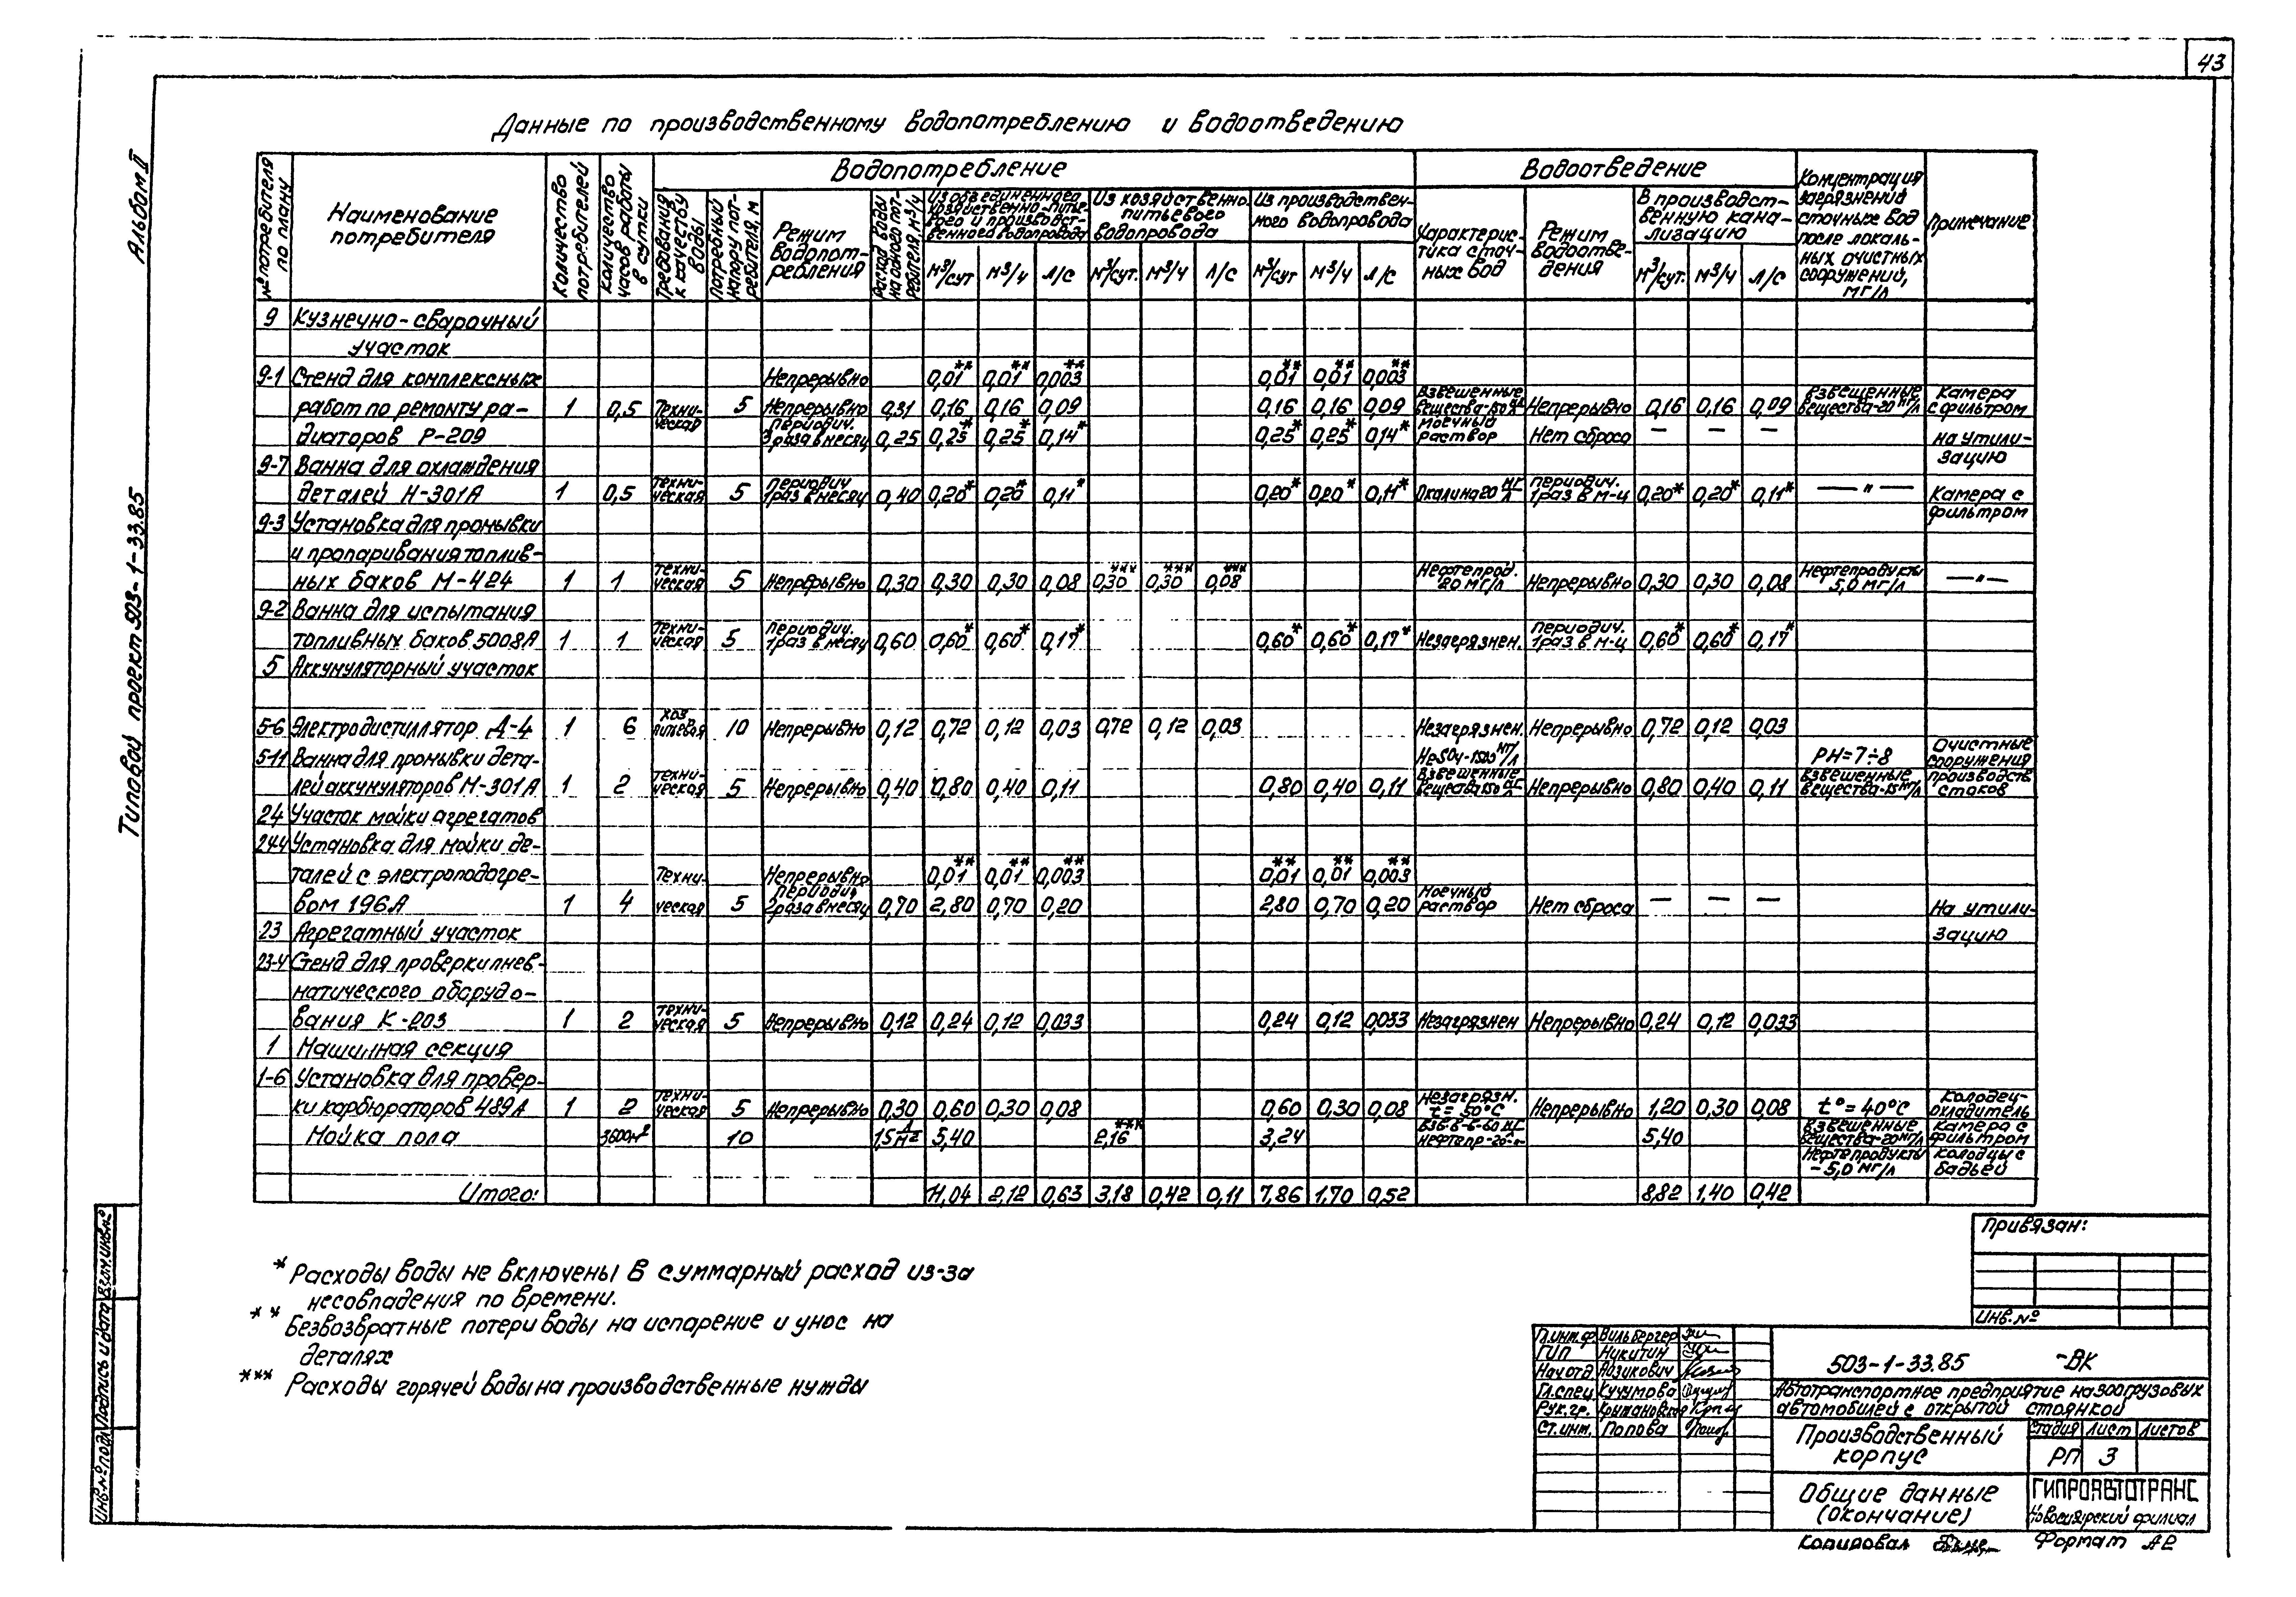 43
Альбом II
Типовой проект 503-1-33.85
Данные по производственному водопотреблению и водоотведению
№ потребителя по плану
Наименование потребителя
Количество потребителей
Количество часов работы в сутки
Водопотребление
Требования к качеству воды
Потребный напор у потребителя, м
Режим водопотребления
Расход воды на одного потребителя, м³/ч
Из объединенного хозяйственно-питьевого и производственного водопровода
Из хозяйственно питьевого водопровода
Из производственного водопровода
м³/сут м³/ч л/с м³/сут. м³/ч л/с м³/сут м³/ч л/с
Водоотведение
Характеристика сточных вод
Режим водоотведения
В производственную канализацию
м³/сут. м³/ч л/с
Концентрация загрязнений сточных вод после локальных очистных сооружений, мг/л
Примечание
9 Кузнечно-сварочный
участок
9-1 Стенд для комплексных Непрерывно 0,01** 0,01** 0,003** 0,01** 0,01** 0,003**
работ по ремонту ра- 1 0,5 Техническая 5 Непрерывно 0,31 0,16 0,16 0,09 0,16 0,16 0,09 Взвешенные вещества-150 мг/л Непрерывно 0,16 0,16 0,09 Взвешенные вещества-20 мг/л Камера с фильтром
диаторов Р-209 Периодич. 3 раза в месяц 0,25 0,25* 0,25* 0,14* 0,25* 0,25* 0,14* Моечный раствор Нет сброса — — — на утили-
9-7 Ванна для охлаждения зацию
деталей Н-301А 1 0,5 Техническая 5 Периодич 1 раз в месяц 0,40 0,20* 0,20* 0,11* 0,20* 0,20* 0,11* Окалина 20 мг/л Периодич. 1 раз в м-ц 0,20* 0,20* 0,11* —"— Камера с
9-3 Установка для промывки фильтром
и пропаривания топлив-
ных баков М-424 1 1 Техническая 5 Непрерывно 0,30 0,30 0,30 0,08 0,30*** 0,30*** 0,08*** Нефтепрод. 20 мг/л Непрерывно 0,30 0,30 0,08 Нефтепродукты 5,0 мг/л —"—
9-2 Ванна для испытания
топливных баков 5008А 1 1 Техническая 5 Периодич. 1 раз в месяц 0,60 0,60* 0,60* 0,17* 0,60* 0,60* 0,17* Незагрязнен. Периодич. 1 раз в м-ц 0,60* 0,60* 0,17*
5 Аккумуляторный участок
5-6 Электродистиллятор Д-4 1 6 хоз. питьевая 10 Непрерывно 0,12 0,72 0,12 0,03 0,72 0,12 0,03 Незагрязнен. Непрерывно 0,72 0,12 0,03
5-11 Ванна для промывки дета- PH=7÷8 Очистные сооружения
лей аккумуляторов М-301А 1 2 Техническая 5 Непрерывно 0,40 0,80 0,40 0,11 0,80 0,40 0,11 Взвешенные вещества 150 мг/л Непрерывно 0,80 0,40 0,11 Взвешенные вещества-15 мг/л производств стоков
24 Участок мойки агрегатов
24-4 Установка для мойки де-
талей с электроподогре- Техни- Непрерывно 0,01** 0,01** 0,003** 0,01** 0,01** 0,003**
вом 196А 1 4 ческая 5 Периодич 2 раза в месяц 0,70 2,80 0,70 0,20 2,80 0,70 0,20 Моечный раствор Нет сброса — — — На утили-
23 Агрегатный участок зацию
23-4 Стенд для проверки пнев-
матического оборудо-
вания К-203 1 2 Техническая 5 Непрерывно 0,12 0,24 0,12 0,033 0,24 0,12 0,033 Незагрязнен Непрерывно 0,24 0,12 0,033
1 Машинная секция
1-6 Установка для провер-
ки карбюраторов 489А 1 2 Техническая 5 Непрерывно 0,30 0,60 0,30 0,08 0,60 0,30 0,08 Незагрязн. t=50°С Непрерывно 1,20 0,30 0,08 t°=40°С Колодец-охладитель
Мойка пола 3600м² 10 1,5 л/м² 5,40 2,16*** 3,24 5,40 Взвешенные вещества-20 мг/л Камера с фильтром
Нефтепродукты - 5,0 мг/л Колодцы с бадьей
Итого: 11,04 2,12 0,63 3,18 0,42 0,11 7,86 1,70 0,52 8,82 1,40 0,42
* Расходы воды не включены в суммарный расход из-за
несовпадения по времени.
** Безвозвратные потери воды на испарение и унос на
деталях
*** Расходы горячей воды на производственные нужды
Привязан:
Инв.№
Гл.инж.ф Вильбергер
ГИП Никитин
Нач.отд Айзикович
Гл.спец Кучумова
Рук.гр.
Ст.инж. Попова
503-1-33.85 -ВК
Автотранспортное предприятие на 300 грузовых
автомобилей с открытой стоянкой
Производственный
корпус
Стадия Лист Листов
РП 3
Общие данные
(окончание)
ГИПРОАВТОТРАНС
Новосибирский филиал
Копировал
Формат А2
Инв.№ подл. Подпись и дата Взам.инв.№